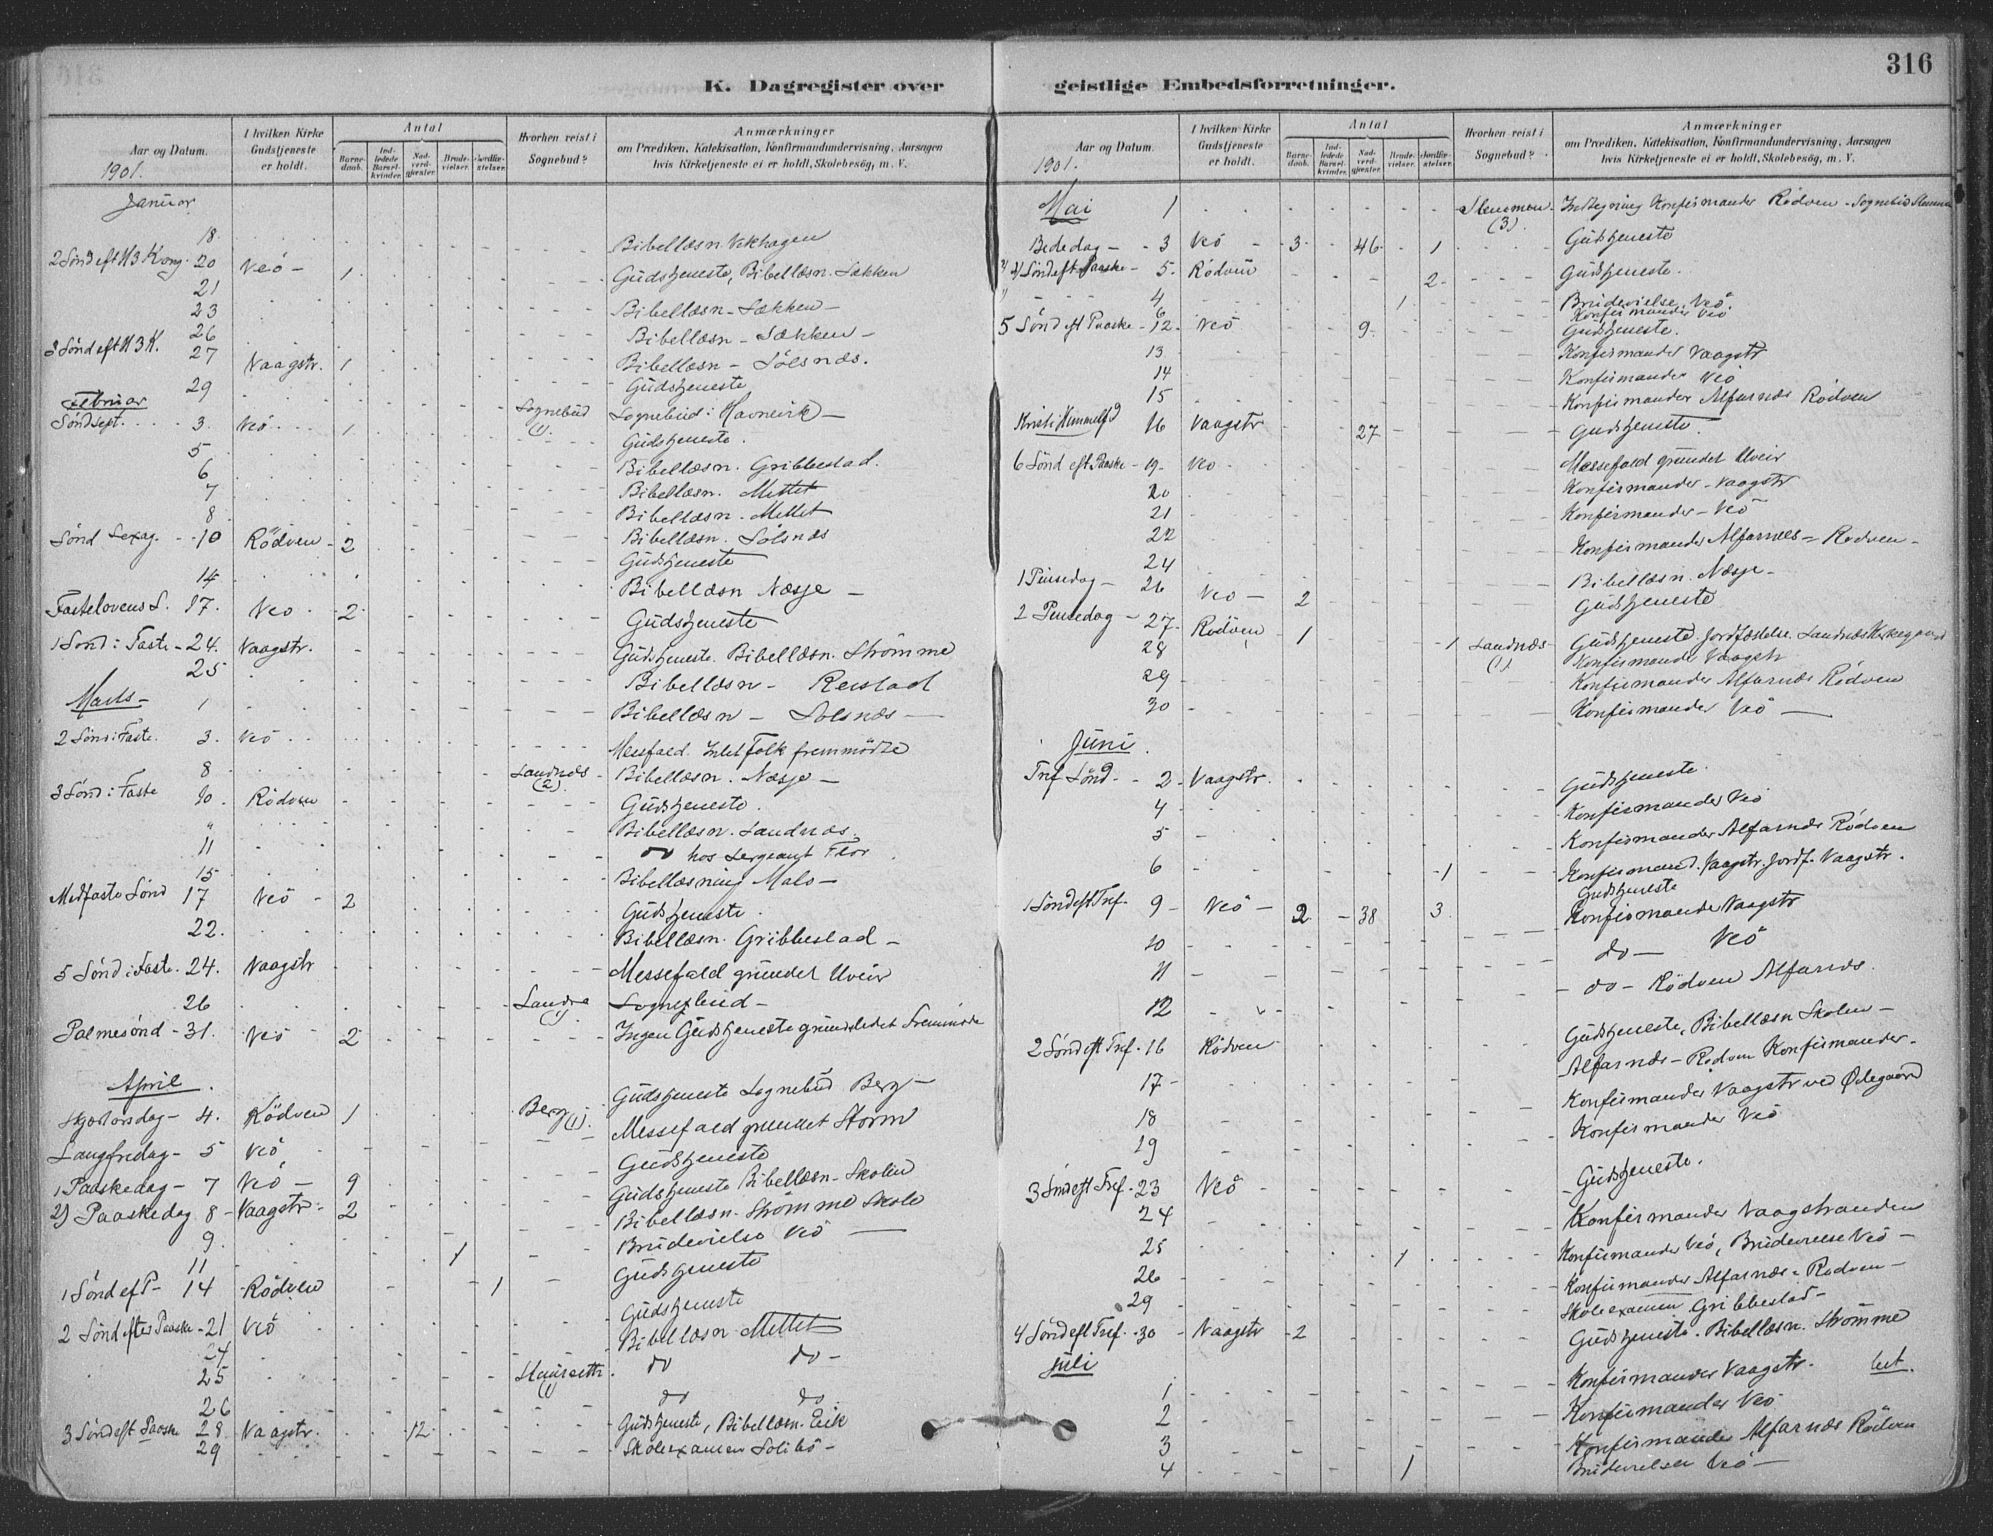 316
K. Dagregister over geistlige Embedsforretninger.
Aar og Datum.
1901.
I hvilken Kirke Gudstjeneste er holdt.
Antal
Barnedaab.
Indledede Barselkvinder.
Nadverdgjæster.
Brudevielser.
Jordfæstelser.
Hvorhen reist i Sognebud?
Anmærkninger
om Prædiken, Katekisation, Konfirmandundervisning, Aarsagen
hvis Kirketjeneste ei er holdt, Skolebesøg, m. V.
Januar
18. Bibellæsn.
2 Sønd eft H 3 Kong. 20 Veö 1 Gudstjeneste, Bibellæsn. Sækken
21
23 Bibellæsn - Sækken -
26 Bibellæsn - Sækken -
3 Sønd eft H 3 K. 27 Vaagstr. 1 Bibellæsn - Sølsnæs.
29 Gudstjeneste
Februar Sognebud (1) Sognebud i Havnevik -
Søndsept. 3. Veö 1 Gudstjeneste.
5 Bibellæsn. Gribbestad.
6 Bibellæsn. Mittet
7 Bibellæsn. Mittet
8 Bibellæsn. Sølsnæs
Sønd Sexag. 10 Rödven 2 Gudstjeneste
14 Bibellæsn Næsje -
Fastelovens S. 17. Veo 2 Gudstjeneste
1 Sønd i Faste - 24. Vaagstr. Gudstjeneste. Bibellæsn. Strømme
25 Bibellæsn - Reistad
Marts - 1 Bibellæsn - Sølsnæs -
2 Sønd i Faste. 3. Veö Messfald. Intet Folk fremmödte
8 Landnæs (2) Bibellæsn. Næsje -
3 Sønd i Faste 10. Rödven Gudstjeneste.
" Bibellæsn. Landnæs.
11 do hos Sergeant Flor
15 Bibellæsning Malo -
Midfaste Sønd 17 Veö 2 Gudstjeneste.
22. Bibellæsn. Gribbestad -
5 Sønd i Faste. 24. Vaagstr Messefald grundet Uveir
26 (1) Sognebud -
Palmesønd - 31. Veö 2 Ingen Gudstjeneste
April.
Skjærtorsdag - 4. Rödven 1 Berg (1). Gudstjeneste Sognebud Berg -
Langfredag - 5 Veö Messefald grundet Storm
1 Paaskedag - 7 Veö - 9 Gudstjeneste
2) Paaskedag 8 - Vaagstr. 2 Gudstjeneste Bibellæsn. Skolen
9. Bibellæsn. Strømme Skole
11 1 Brudevielse Veö
1 Sønd ef P - 14 Rödven 1 Gudstjeneste
2 Sønd efter Paaske - 21 Veö Gudstjeneste
24 Bibellæsn Mittet
25 (1) do do -
26 do do
3 Sønd eft Paaske 28. Vaagstr. 12 Gudstjeneste, Bibellæsn. Eik
29 Skoleexamen Solibö -
Aar og Datum.
1901.
I hvilken Kirke Gudstjeneste er holdt.
Antal
Barnedaab.
Indledede Barselkvinder.
Nadverdgjæster.
Brudevielser.
Jordfæstelser.
Hvorhen reist i Sognebud?
Anmærkninger
om Prædiken, Katekisation, Konfirmandundervisning, Aarsagen
hvis Kirketjeneste ei er holdt, Skolebesøg, m. V.
Mai 1 (3) Indtegning Konfirmander Rödven - Sognebud
Bededag - 3 Veö 3 46 1 Gudstjeneste
Sønd eft Paaske - 5. Rödven 2 Gudstjeneste.
4 1 Brudevielse Veö
6 Konfirmander Veö
5 Sønd eft Paaske - 12. Veö 9. Gudstjeneste.
13 Konfirmander Vaagstr
14 Konfirmander Veö
15 Konfirmander Alfarnæs Rödven
Kristi Himmelfd 16 Vaagstr 27 Gudstjeneste
6 Sønd eft Paaske - 19. Veo Messefald grundet Uveir
20 Konfirmander - Vaagstr
21 Konfirmander - Veö
22 Konfirmander Alfarnæs - Rödven -
24 Bibellæsn. Næsje -
1 Pinsedag - 26 Veo - 2 Gudstjeneste
2 Pinsedag - 27. Rodven 1 1 Landnæs (1). Gudstjeneste. Jordfæstelse. Landnæs Kirkegaard
28 Konfirmander Vaagstr
29 Konfirmander Alfarnæs Rödven
30 Konfirmander Veö -
Juni.
Tref Sønd. 2 Vaagstr. Gudstjeneste.
4 Konfirmander Veo
5 Konfirmander Alfarnæs Rödven
6 1 Konfirmand. Vaagstr. Jordf. Vaagstr.
1 Sønd eft Tref. 9 Veö 2 38 3. Gudstjeneste
Konfirmander Vaagstr
10 do - Veö
11 do - Rödven Alfarnæs.
12
2 Sønd eft Tref. 16 Rödven Gudstjeneste, Bibellæsn Skolen -
17 Alfarnæs - Rodven Konfirmander.
18 Konfirmander Vaagstr ved Ødegaard
19 Konfirmander Veö
3 Sønd eft Tref. 23 Veö Gudstjeneste.
24 Konfirmander Vaagstranden
25 1 Konfirmander Veö, Brudevielse Veö -
26 Konfirmander Alfarnæs - Rodven -
29 Skoleexamen Gribbestad -
4 Sønd eft Tref. 30 Vaagstr 2 Gudstjeneste. Bibellæsn. Strömme
Juli
1 Konfirmander Vaagstr.
2 Konfirmander Veo
3 Konfirmander Alfarnæs Rödven
4 1 Brudevielse Veö -